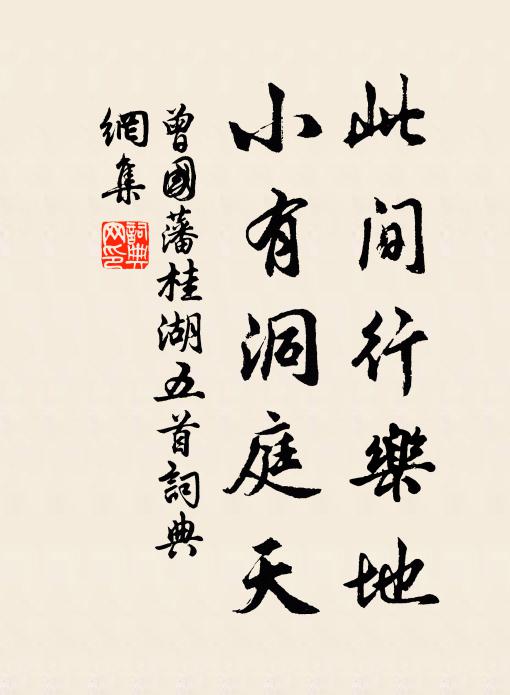 此間行樂地
小有洞庭天
曾國藩桂湖五首詞典
網集
詞典
网印